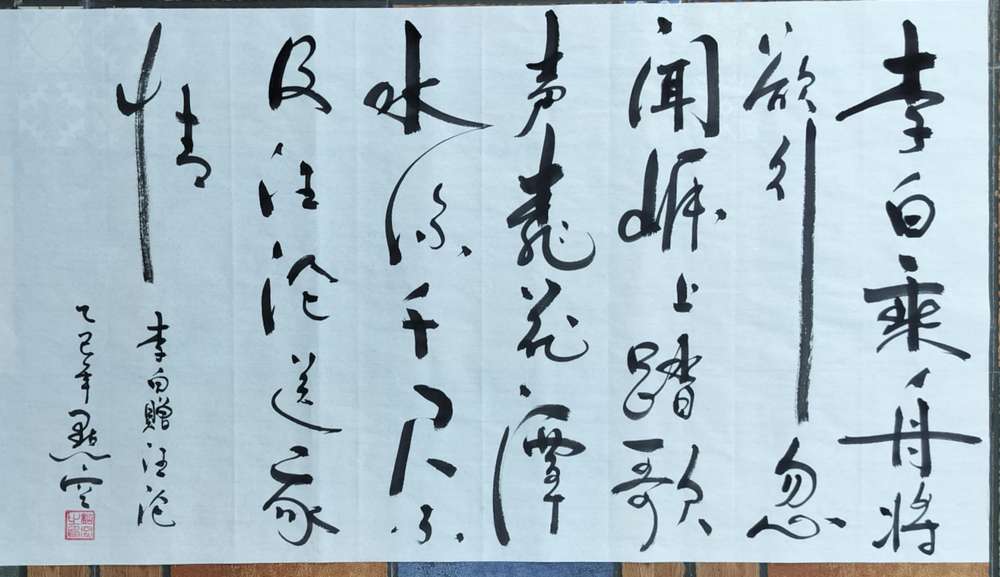 李白乘舟将
欲行忽
闻岸上踏歌
声桃花潭
水深千尺不
及汪沦送我
情
李白贈汪沦
乙巳年點空